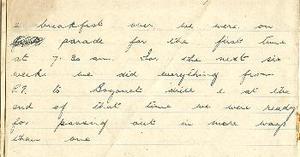 & breakfast over we were on
parade for the first time
at 7.30 am. For the next six
weeks we did everything from
P.T. to Bayonet drill & at the
end of that time we were ready
for passing out in more ways
than one